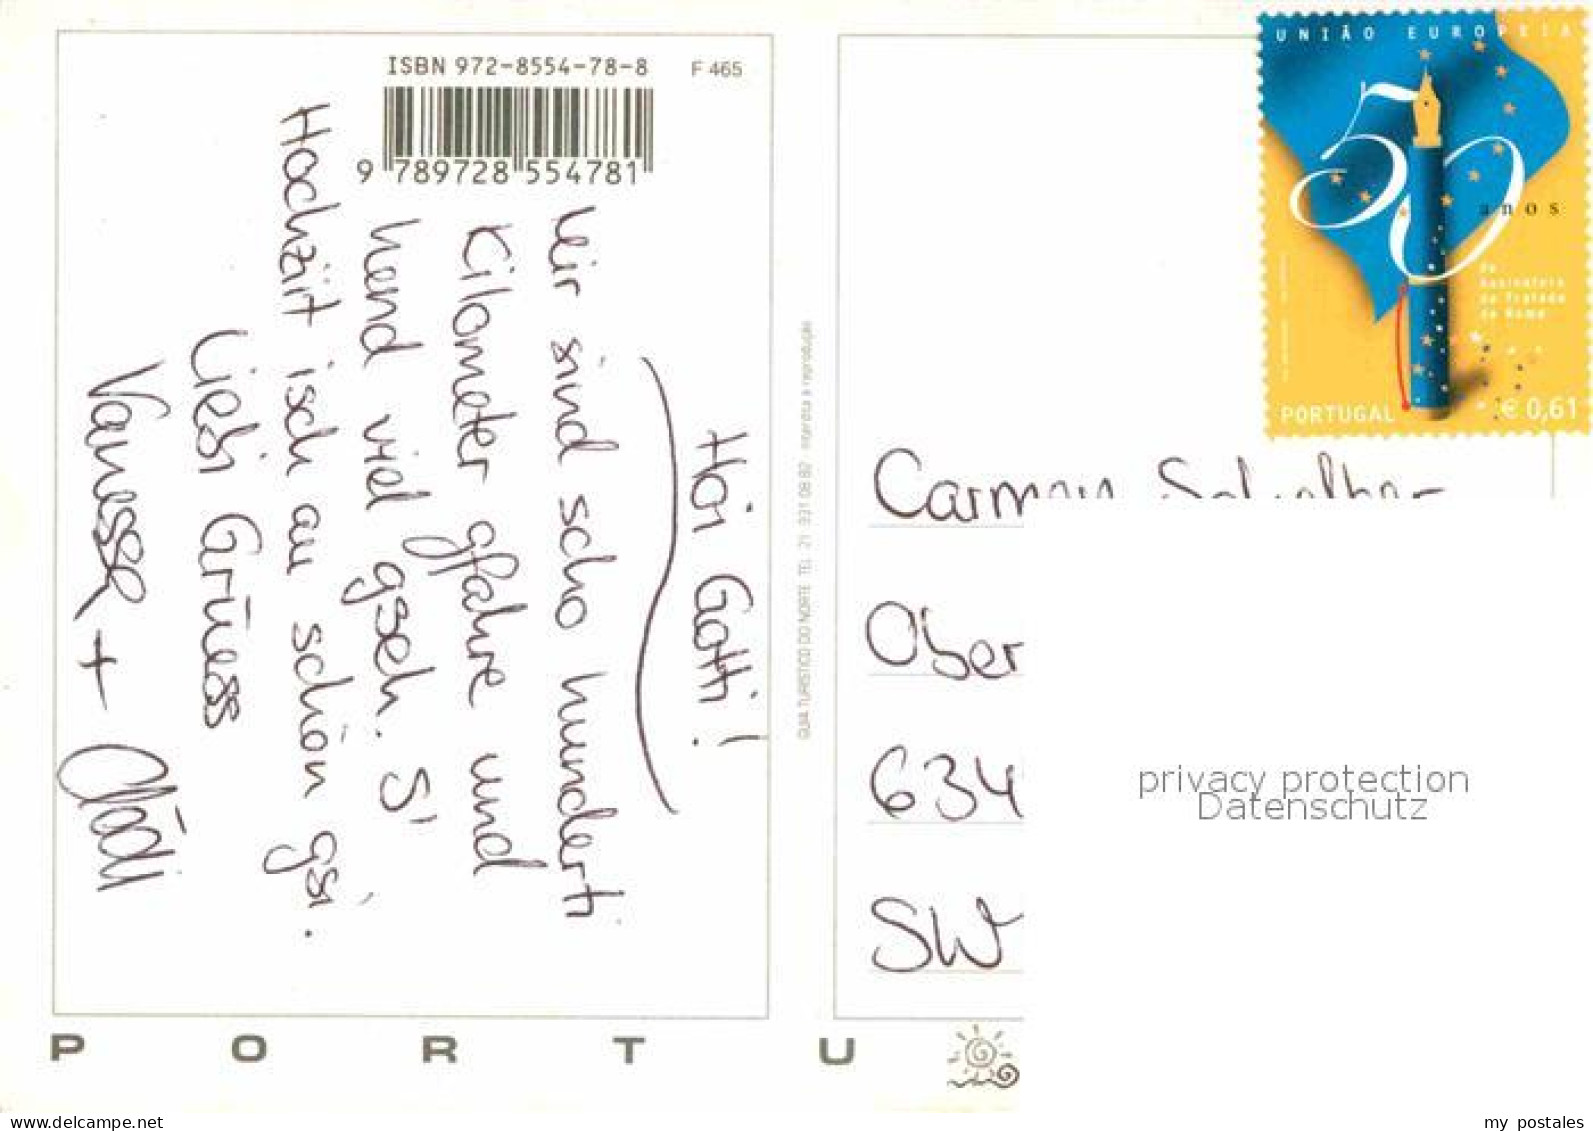 ISBN 972-8554-78-8
F 465
9 789728 554781
Hoi Gotti!
Wir sind scho hunderti
Kilometer gfahre und
hend viel gseh. S'
Hochziit isch au schön gsi.
Liebi Grüess
Vanessa +
GUIA TURISTICO DO NORTE TEL. 21 831 08 82 Interdita a reprodução
UNIÃO EUROPEIA
50
anos
da
Assinatura
do Tratado
de Roma
PORTUGAL
€ 0,61
Carmen
Ober
634
SW
privacy protection
Datenschutz
P O R T U
my postales
www.delcampe.net